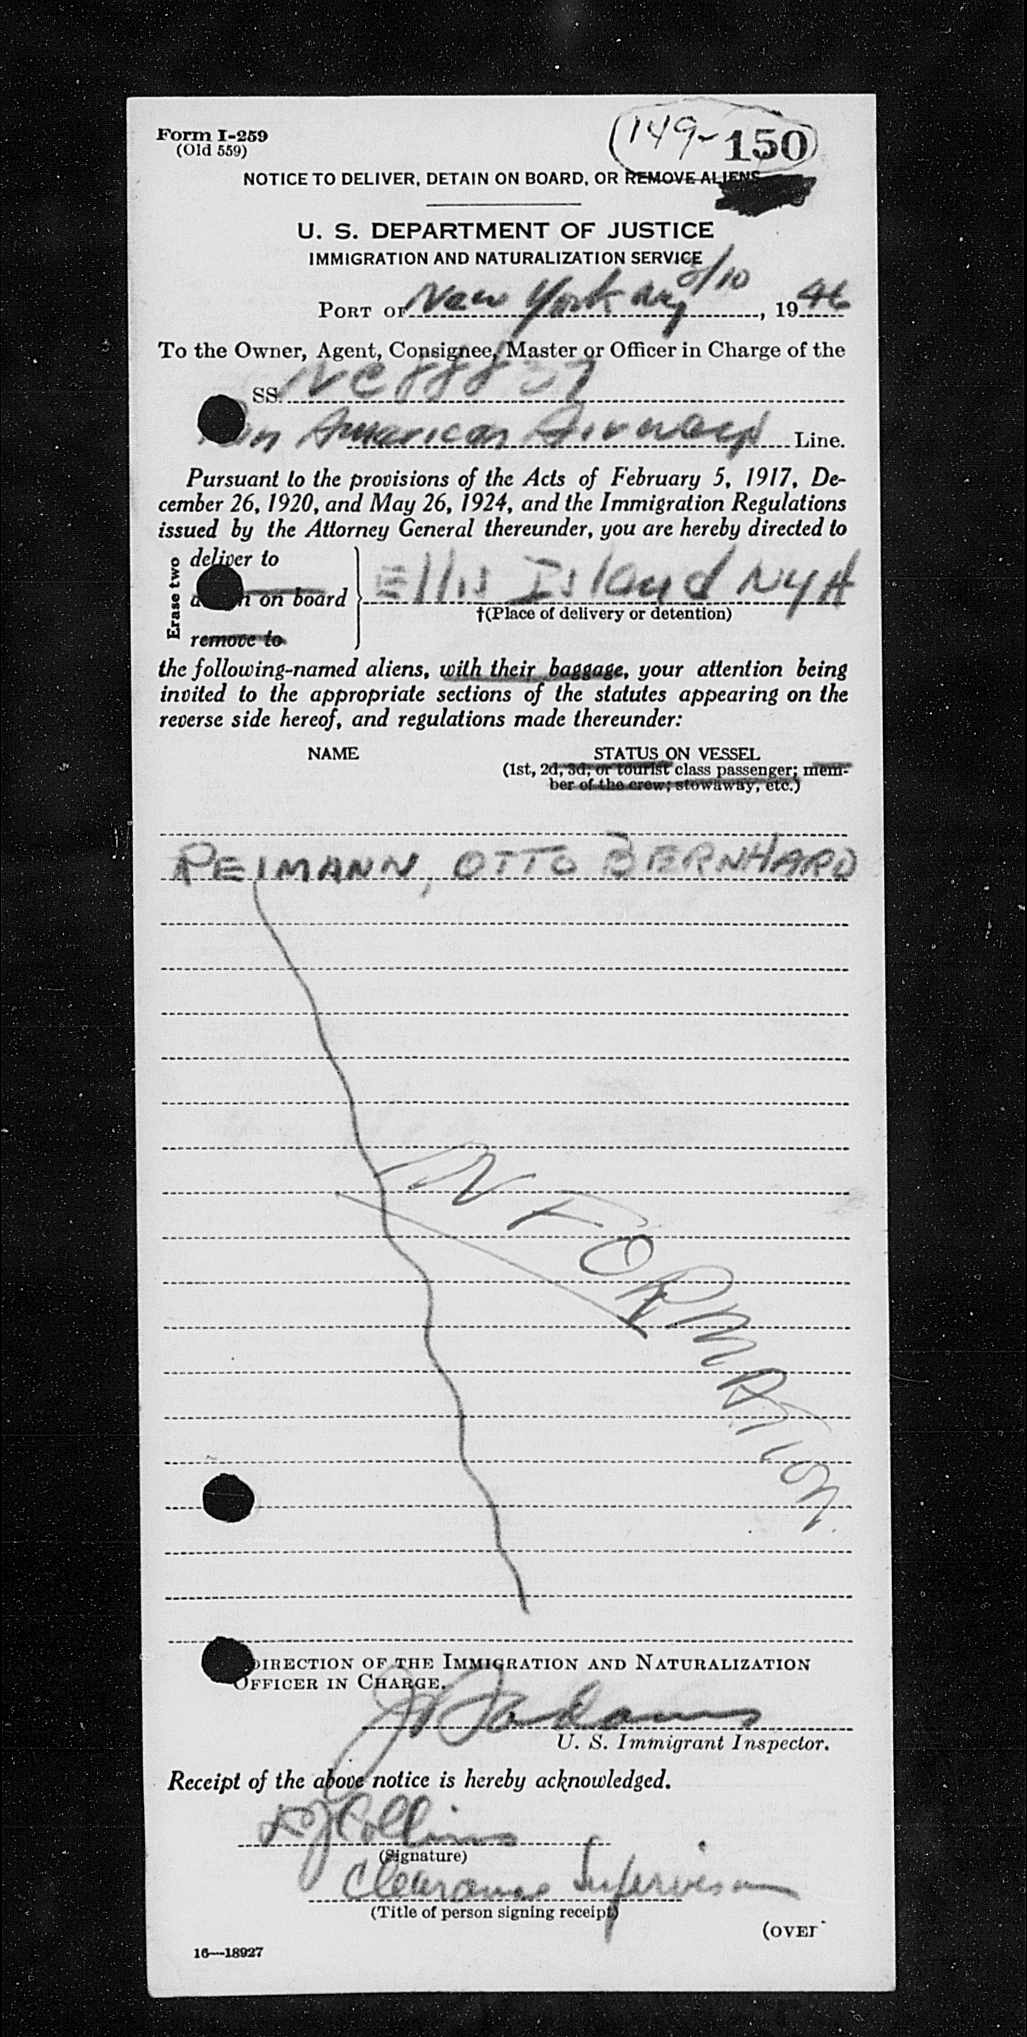 Form I-259
(Old 559)
149-150
NOTICE TO DELIVER, DETAIN ON BOARD, OR REMOVE ALIENS
U. S. DEPARTMENT OF JUSTICE
IMMIGRATION AND NATURALIZATION SERVICE
PORT OF New York 3/10, 1946
To the Owner, Agent, Consignee, Master or Officer in Charge of the
SS. NC 88837
Pan American Airways Line.
Pursuant to the provisions of the Acts of February 5, 1917, De-
cember 26, 1920, and May 26, 1924, and the Immigration Regulations
issued by the Attorney General thereunder, you are hereby directed to
Erase two
deliver to
on board
remove to
Ellis Island NYH
†(Place of delivery or detention)
the following-named aliens, with their baggage, your attention being
invited to the appropriate sections of the statutes appearing on the
reverse side hereof, and regulations made thereunder:
NAME STATUS ON VESSEL
(1st, 2d, 3d, or tourist class passenger; mem-
ber of the crew; stowaway, etc.)
REIMANN, OTTO BERNHARD
INFORMATION
DIRECTION OF THE IMMIGRATION AND NATURALIZATION
OFFICER IN CHARGE.
Adams
U. S. Immigrant Inspector.
Receipt of the above notice is hereby acknowledged.
Collins
(Signature)
Clearance Supervisor
(Title of person signing receipt)
(OVER
16—18927